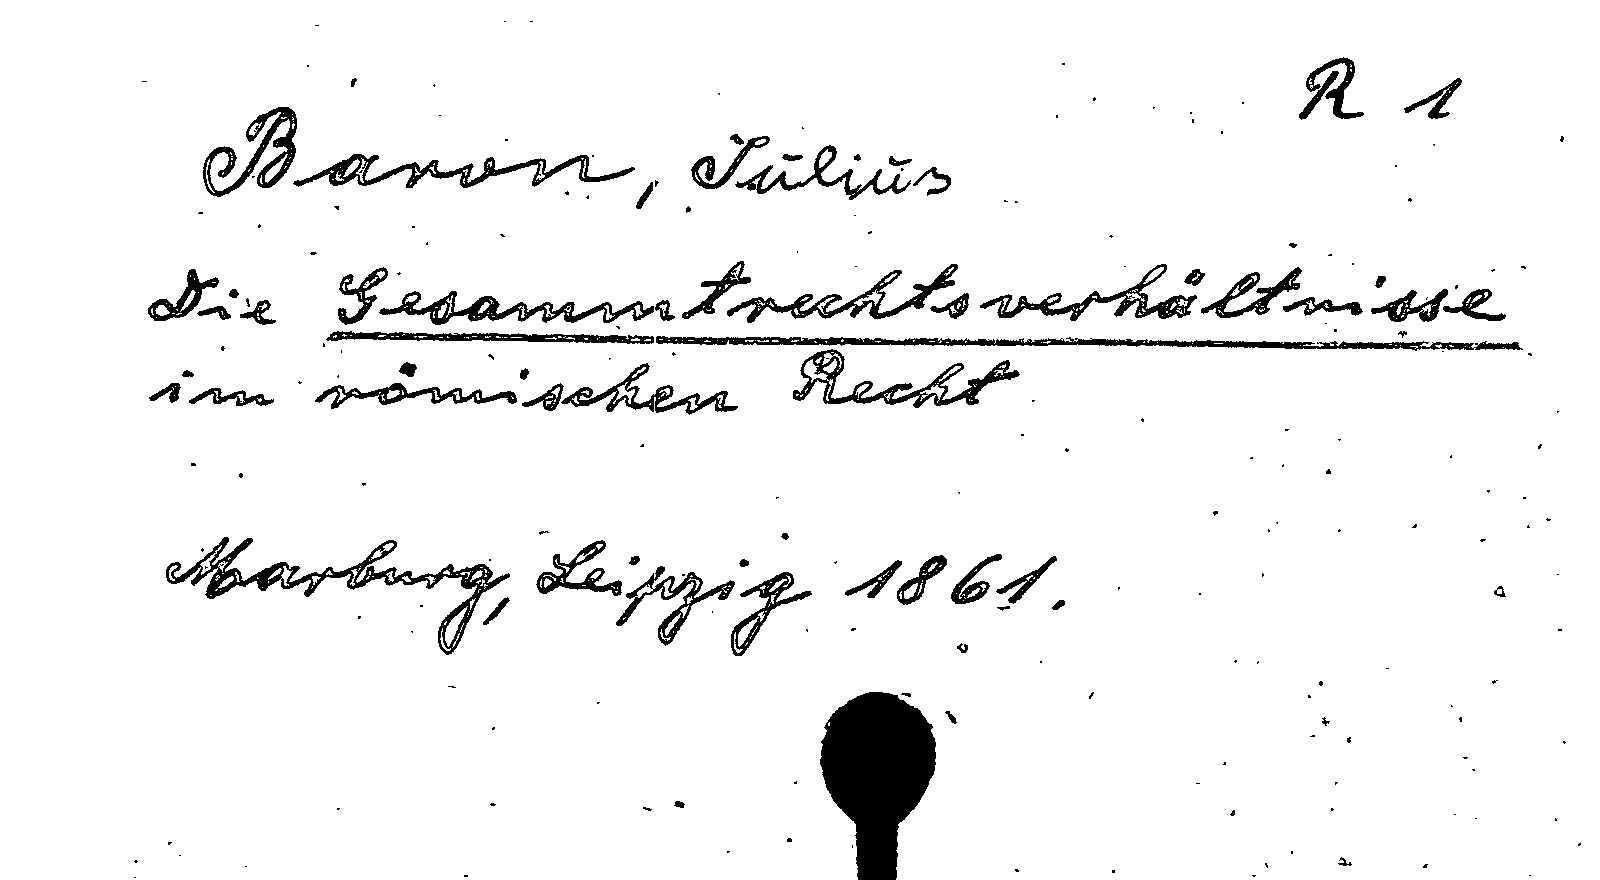 R 1
Baron, Julius
Die Gesammtrechtsverhältnisse
im römischen Recht
Marburg, Leipzig 1861.